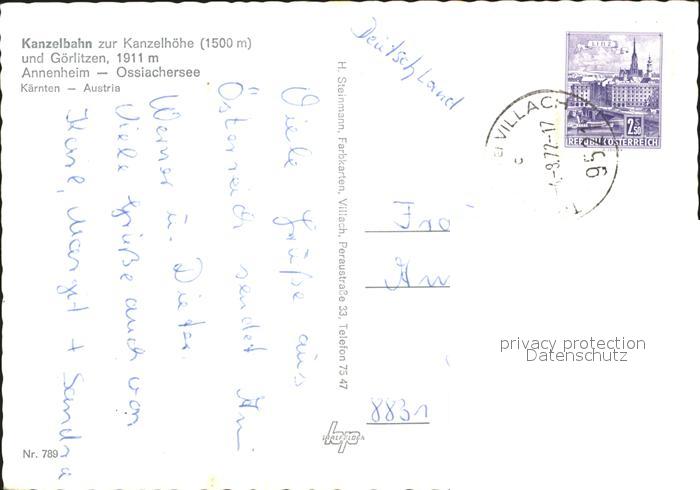 Kanzelbahn zur Kanzelhöhe (1500 m)
und Görlitzen, 1911 m
Annenheim — Ossiachersee
Kärnten — Austria
Deutschland
LINZ
2.50
REPUBLIK ÖSTERREICH
VILLACH
Viele Grüße aus
Österreich sendet
Werner u. Dieter.
Viele Grüße auch von
Margot + Sandra
H. Steinmann, Farbkarten, Villach, Peraustraße 33, Telefon 75 47
Frä
An
8831
privacy protection
Datenschutz
Nr. 789